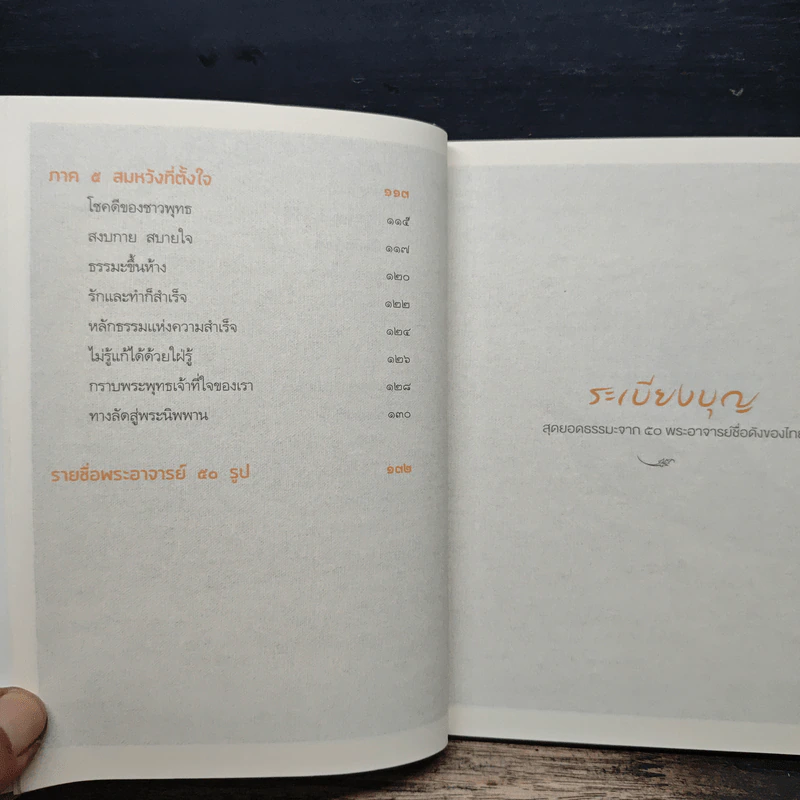 ภาค ๕ สมหวังที่ตั้งใจ ๑๑๓
โชคดีของชาวพุทธ ๑๑๕
สงบกาย สบายใจ ๑๑๗
ธรรมะขึ้นห้าง ๑๒๐
รักและทำก็สำเร็จ ๑๒๒
หลักธรรมแห่งความสำเร็จ ๑๒๔
ไม่รู้แก้ได้ด้วยใฝ่รู้ ๑๒๖
กราบพระพุทธเจ้าที่ใจของเรา ๑๒๘
ทางลัดสู่พระนิพพาน ๑๓๐
รายชื่อพระอาจารย์ ๕๐ รูป ๑๓๒
ระเบียงบุญ
สุดยอดธรรมะจาก ๕๐ พระอาจารย์ชื่อดังของไทย